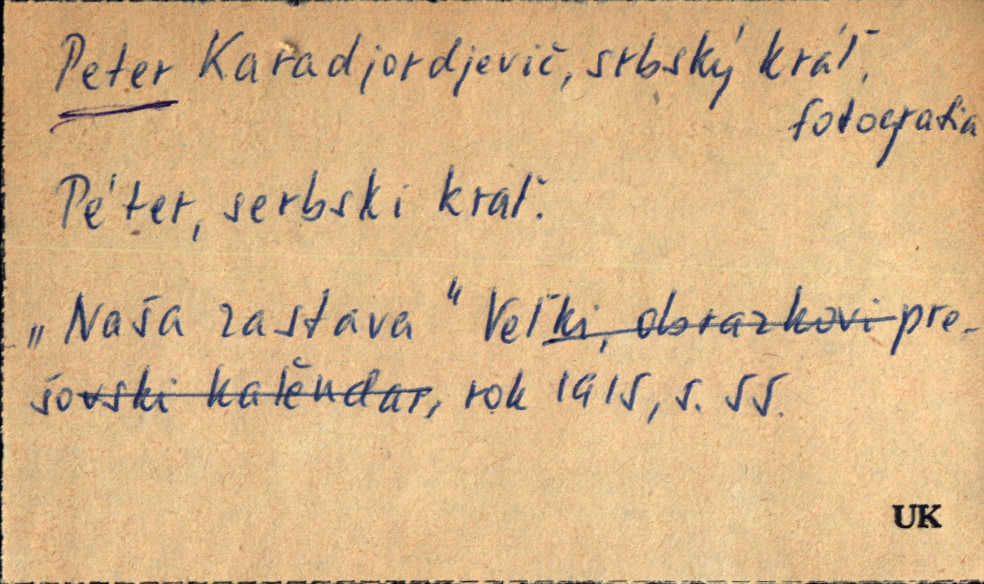 Peter Karadjordjevič, srbský kráľ,
fotografia
Péter, serbski kraľ.
„Naša zastava" Veľki, obrazkovi pre-
šovski kalěndar, rok 1915, s. 55.
UK